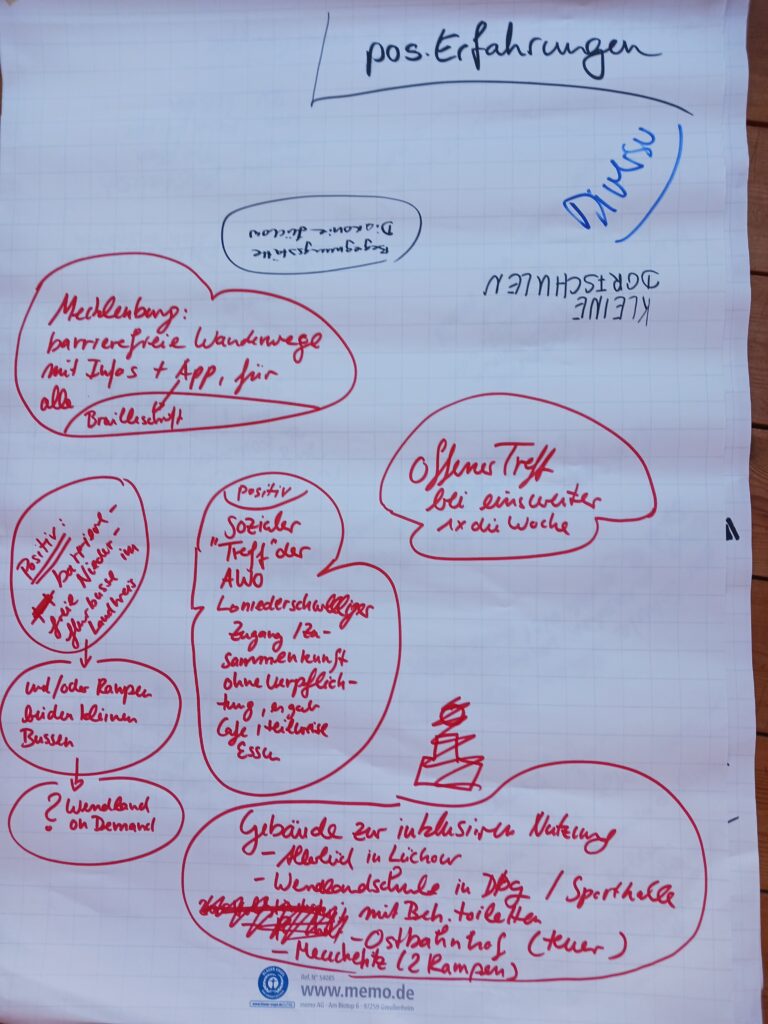 pos. Erfahrungen
Diverse
Begegnungsstätte
Diakonie Lüchow
KLEINE
DORFSCHULEN
Mecklenburg:
barrierefreie Wanderwege
mit Infos + App, für
alle
Brailleschrift
Offener Treff
bei einsweiter
1x die Woche
Positiv:
barriere-
freie Nieder-
flurbusse im
Landkreis
und/oder Rampen
bei den kleinen
Bussen
? Wendland
on Demand
positiv
Sozialer
"Treff" der
AWO
niederschwelliger
Zugang / Zu-
sammenkunft
ohne Verpflich-
tung, es gab
Cafe, teilweise
Essen
Gebäude zur inklusiven Nutzung
- in Lüchow
- Wendlandschule in Dbg / Sporthalle
mit Beh.toiletten
- Ostbahnhof (teuer)
- Meuchefitz (2 Rampen)
Ref.N° 54085
www.memo.de
memo AG · Am Biotop 6 · 97259 Greußenheim